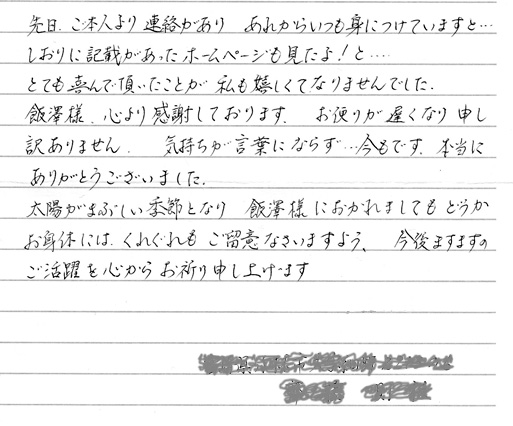 先日、ご本人より連絡があり あれからいつも身につけていますと…
しおりに記載があったホームページも見たよ！と‥‥
とても喜んで頂いたことが 私も嬉しくてなりませんでした.
飯澤様、心より感謝しております. お便りが遅くなり申し
訳ありません. 気持ちが言葉にならず…今もです. 本当に
ありがとうございました.
太陽がまぶしい季節となり 飯澤様におかれましてもどうか
お身体には、くれぐれもご留意なさいますよう、 今後ますますの
ご活躍を心からお祈り申し上げます